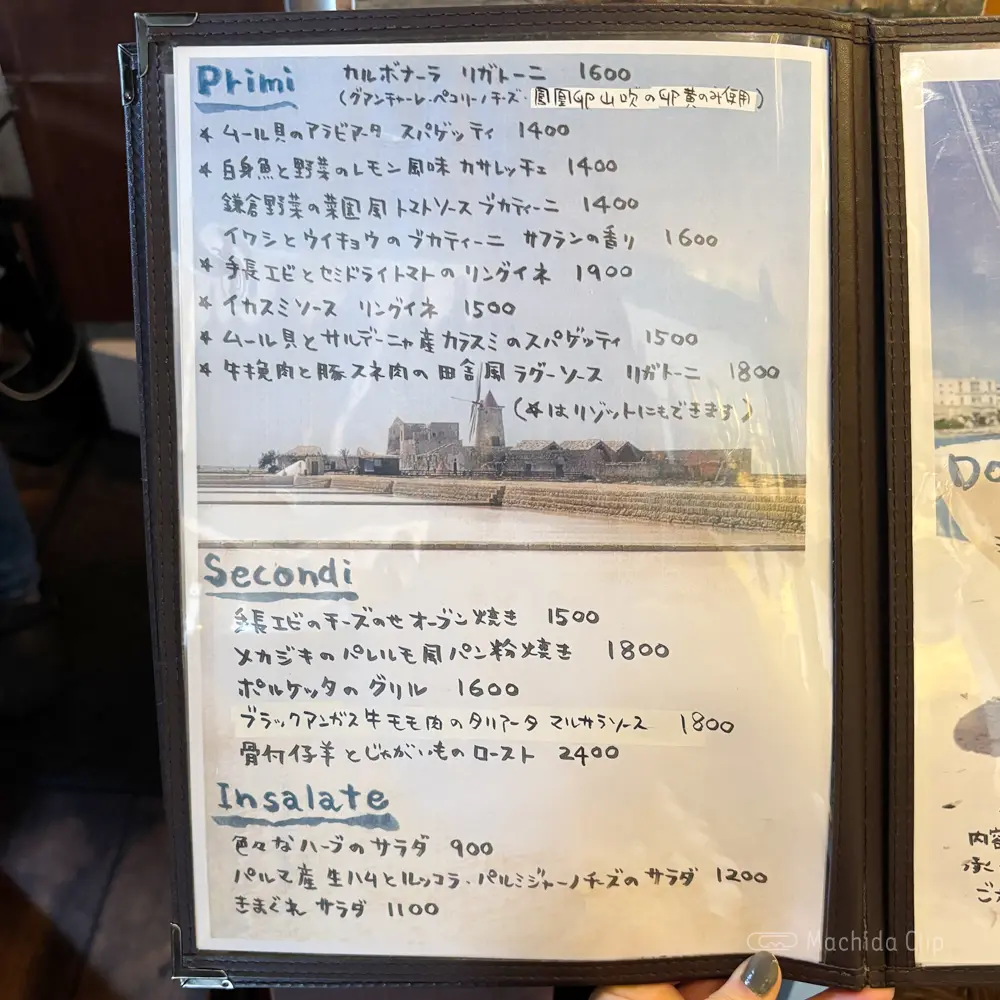 Primi
カルボナーラ リガトーニ 1600
(グアンチャーレ・ペコリーノチーズ・鳳凰卵山吹の卵黄のみ使用)
* ムール貝のアラビアータ スパゲッティ 1400
* 白身魚と野菜のレモン風味 カサレッチェ 1400
鎌倉野菜の菜園風トマトソース ブカティーニ 1400
イワシとウイキョウのブカティーニ サフランの香り 1600
* 手長エビとセミドライトマトのリングイネ 1900
* イカスミソース リングイネ 1500
* ムール貝とサルデーニャ産カラスミのスパゲッティ 1500
* 牛挽肉と豚スネ肉の田舎風ラグーソース リガトーニ 1800
(*はリゾットにもできます)
Secondi
手長エビのチーズのせオーブン焼き 1500
メカジキのパレルモ風パン粉焼き 1800
ポルケッタのグリル 1600
ブラックアンガス牛モモ肉のタリアータ マルサラソース 1800
骨付仔羊とじゃがいものロースト 2400
Insalate
色々なハーブのサラダ 900
パルマ産生ハムとルッコラ・パルミジャーノチーズのサラダ 1200
きまぐれサラダ 1100
Do
内容
承
ご
Machida Clip